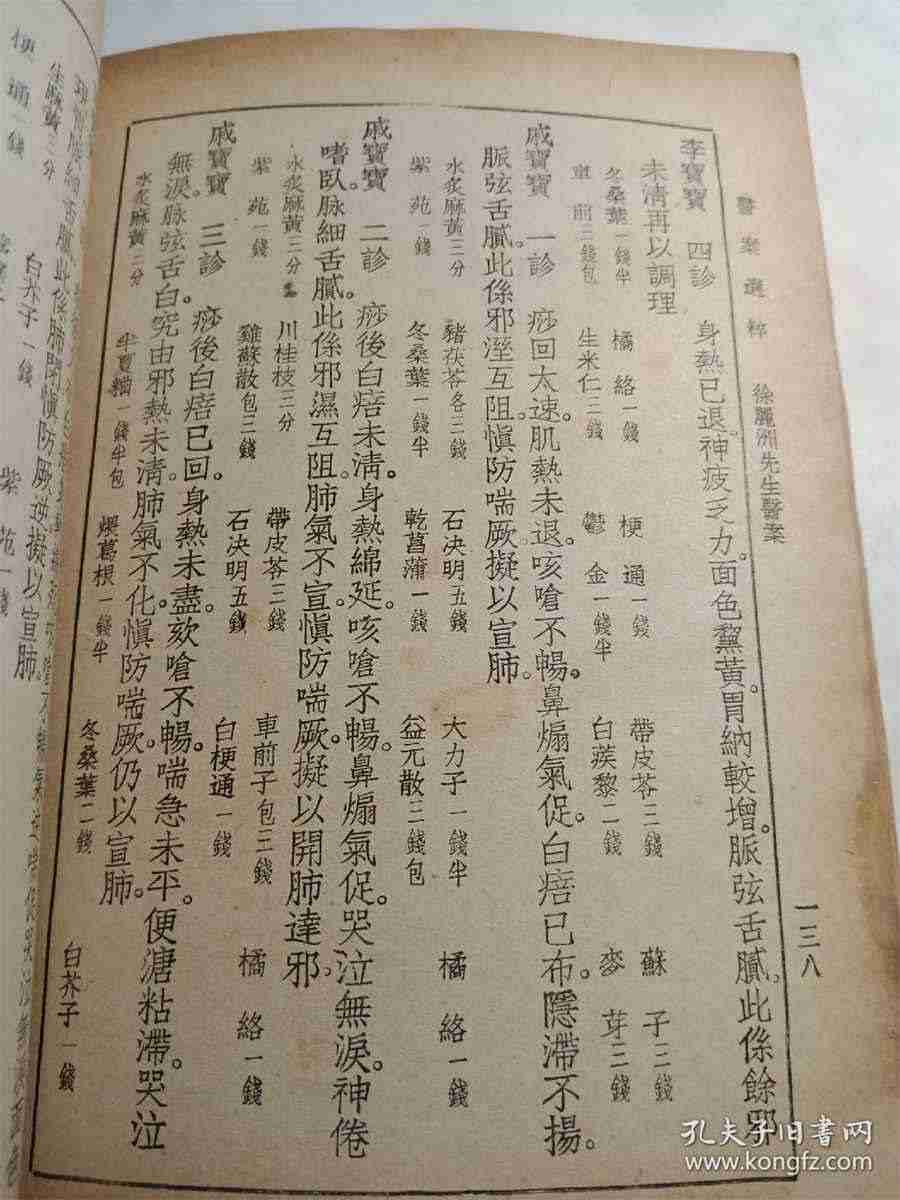 醫案選粹
徐麗洲先生醫案
一三八
李寶寶　四診　身熱已退。神疲乏力。面色黧黃。胃納較增。脈弦舌膩。此係餘邪
未淸再以調理
冬桑葉一錢半　橘絡一錢　梗通一錢　帶皮苓三錢　蘇子三錢
車前三錢包　生米仁三錢　鬱金一錢半　白蒺藜二錢　麥芽三錢
戚寶寶　一診　痧回太速。肌熱未退。咳嗆不暢。鼻煽氣促。白㾦已布。隱滯不揚。
脈弦舌膩。此係邪溼互阻。愼防喘厥。擬以宣肺。
水炙麻黃三分　豬茯苓各三錢　石決明五錢　大力子一錢半　橘絡一錢
紫苑一錢　冬桑葉一錢半　乾菖蒲一錢　益元散三錢包
戚寶寶　二診　痧後白㾦未淸。身熱綿延。咳嗆不暢。鼻煽氣促。哭泣無淚。神倦
嗜臥。脉細舌膩。此係邪濕互阻。肺氣不宣。愼防喘厥。擬以開肺達邪。
水炙麻黃三分　川桂枝三分　帶皮苓三錢　車前子包三錢　橘絡一錢
紫苑一錢　雞蘇散包三錢　石決明五錢　白梗通一錢
戚寶寶　三診　痧後白㾦已回。身熱未盡。欬嗆不暢。喘急未平。便溏粘滯。哭泣
無淚。脉弦舌白。究由邪熱未淸。肺氣不化。愼防喘厥。仍以宣肺。
水炙麻黃三分　半夏麯一錢半包　煨葛根一錢半　冬桑葉二錢　白芥子一錢
此係肺閉愼防厥逆擬以宣肺。
白芥子一錢　紫苑一錢
便通一錢
孔夫子旧书网
www.kongfz.com